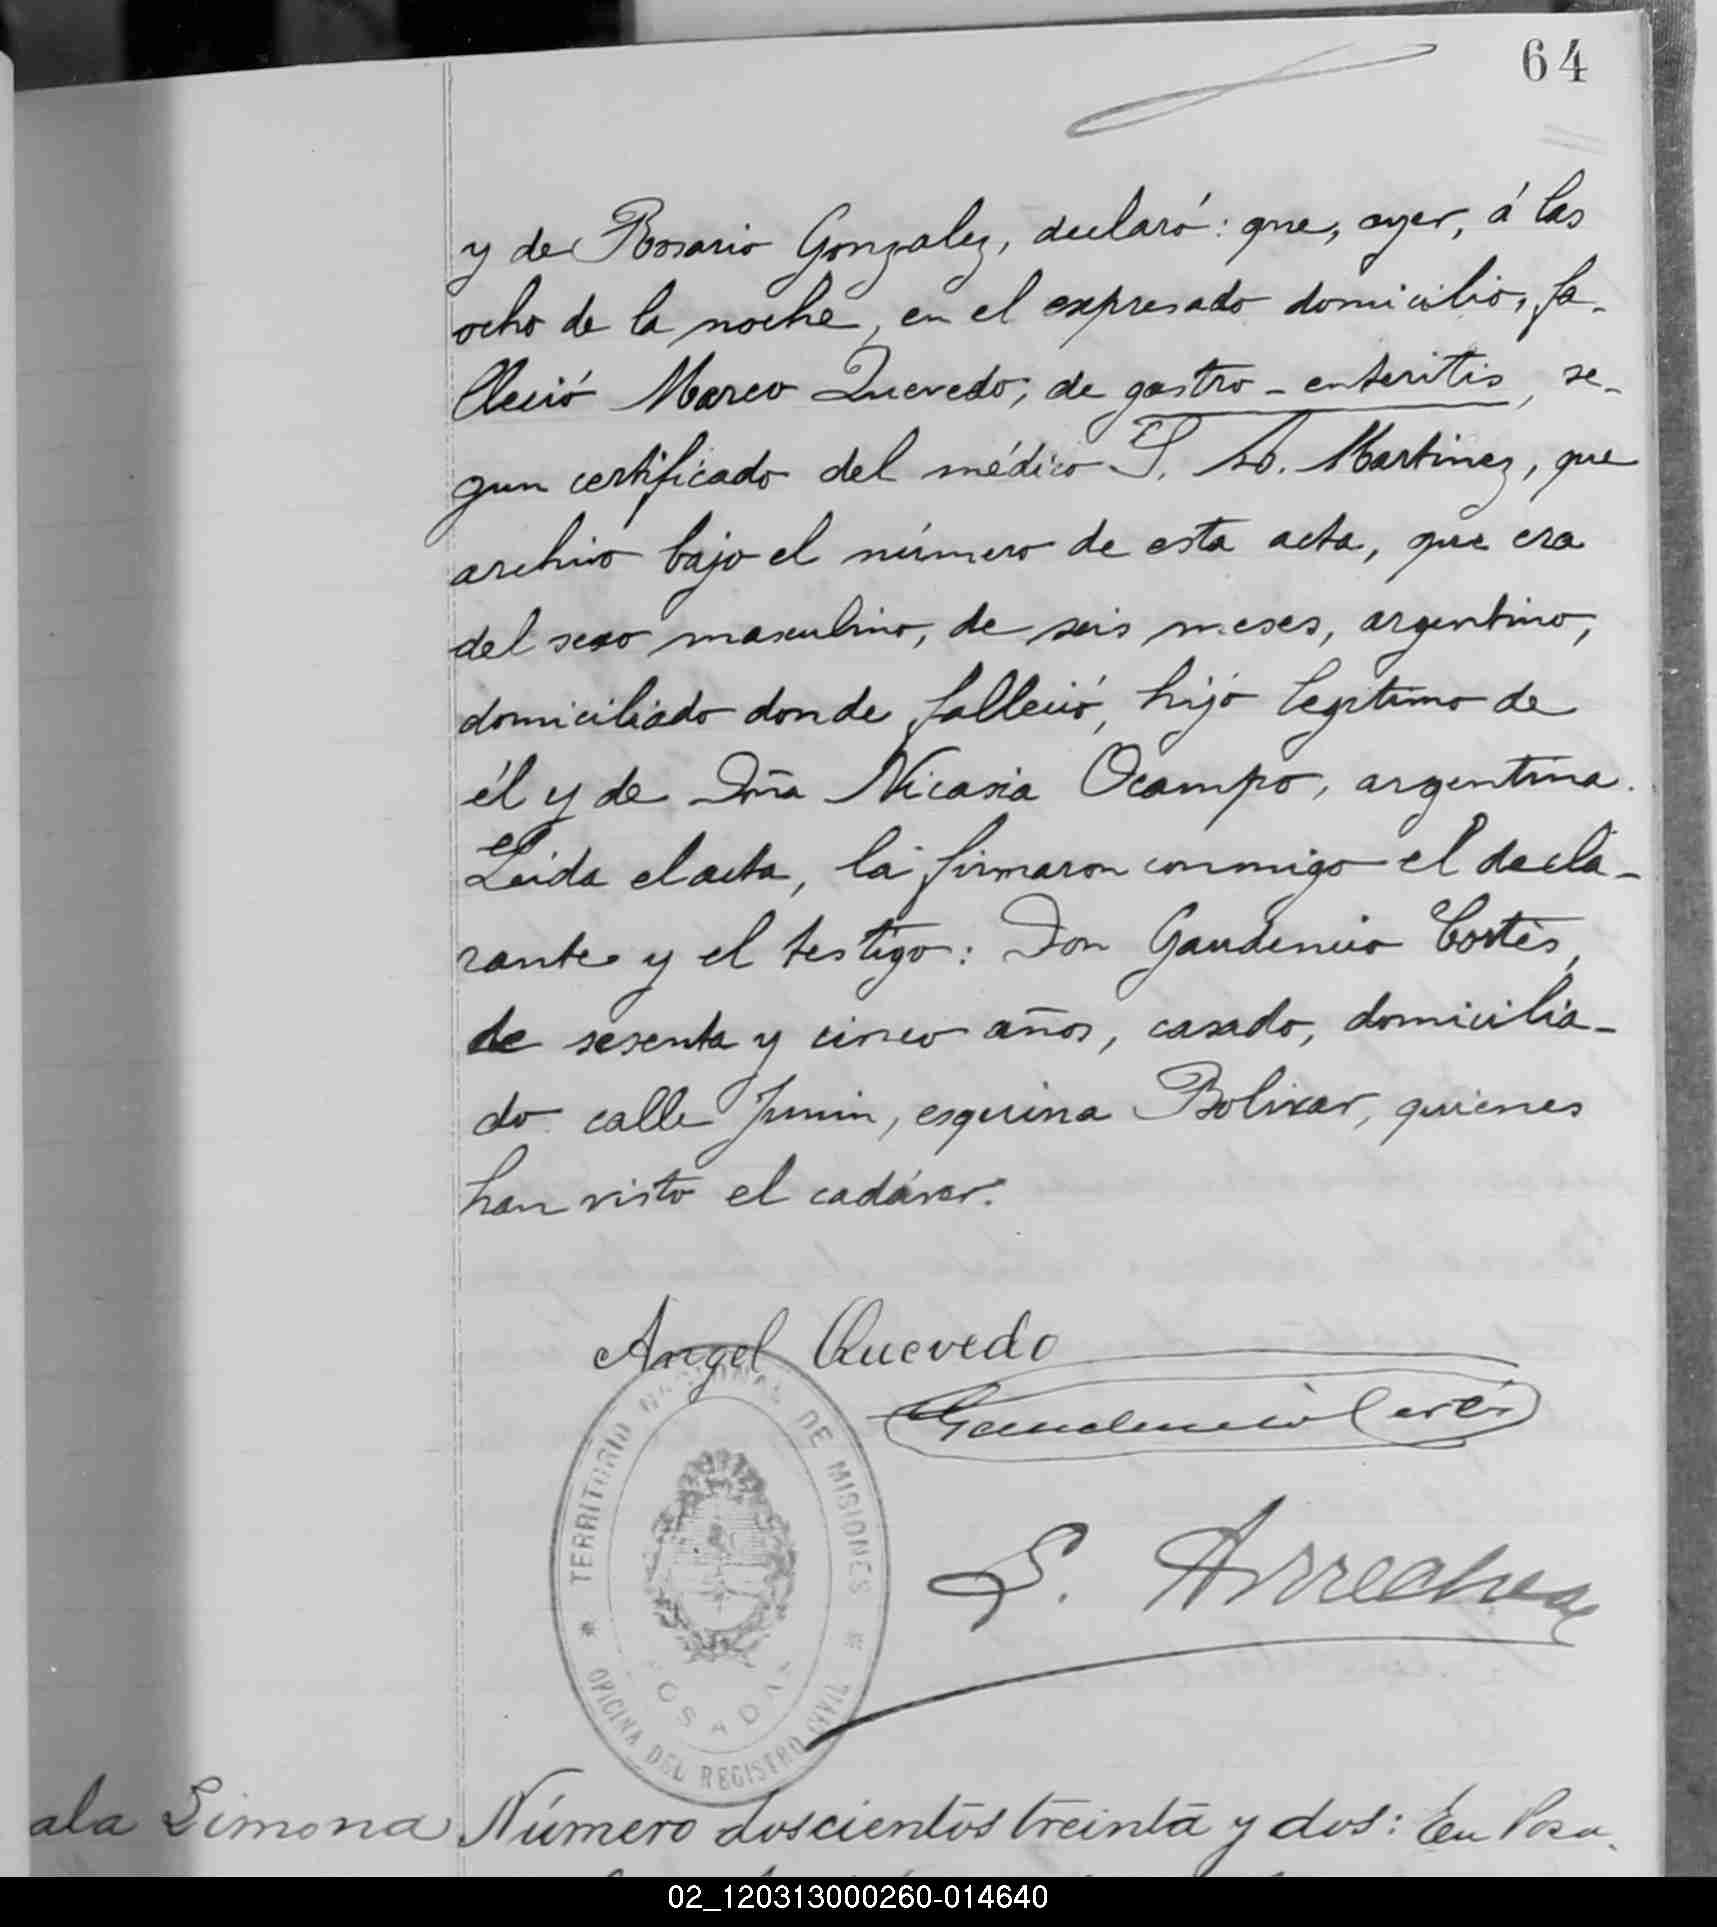 64
y de Rosario Gonzalez, declaró: que, ayer, á las
ocho de la noche, en el expresado domicilio, fa-
lleció Marco Quevedo, de gastro-enteritis, se-
gun certificado del médico Martinez, que
archivo bajo el número de esta acta, que era
del sexo masculino, de seis meses, argentino,
domiciliado donde falleció, hijo legitimo de
él y de Dña Nicasia Ocampo, argentina.
Leida el acta, la firmaron conmigo el decla-
rante y el testigo: Don Gaudencio Cortés,
de sesenta y cinco años, casado, domicilia-
do calle Junin, esquina Bolivar, quienes
han visto el cadáver.
Angel Quevedo
Gaudencio Cortés
S. Arrechea
TERRITORIO NACIONAL DE MISIONES
POSADAS
* OFICINA DEL REGISTRO CIVIL *
ala Simona Número doscientos treinta y dos: En Posa-
02_120313000260-014640